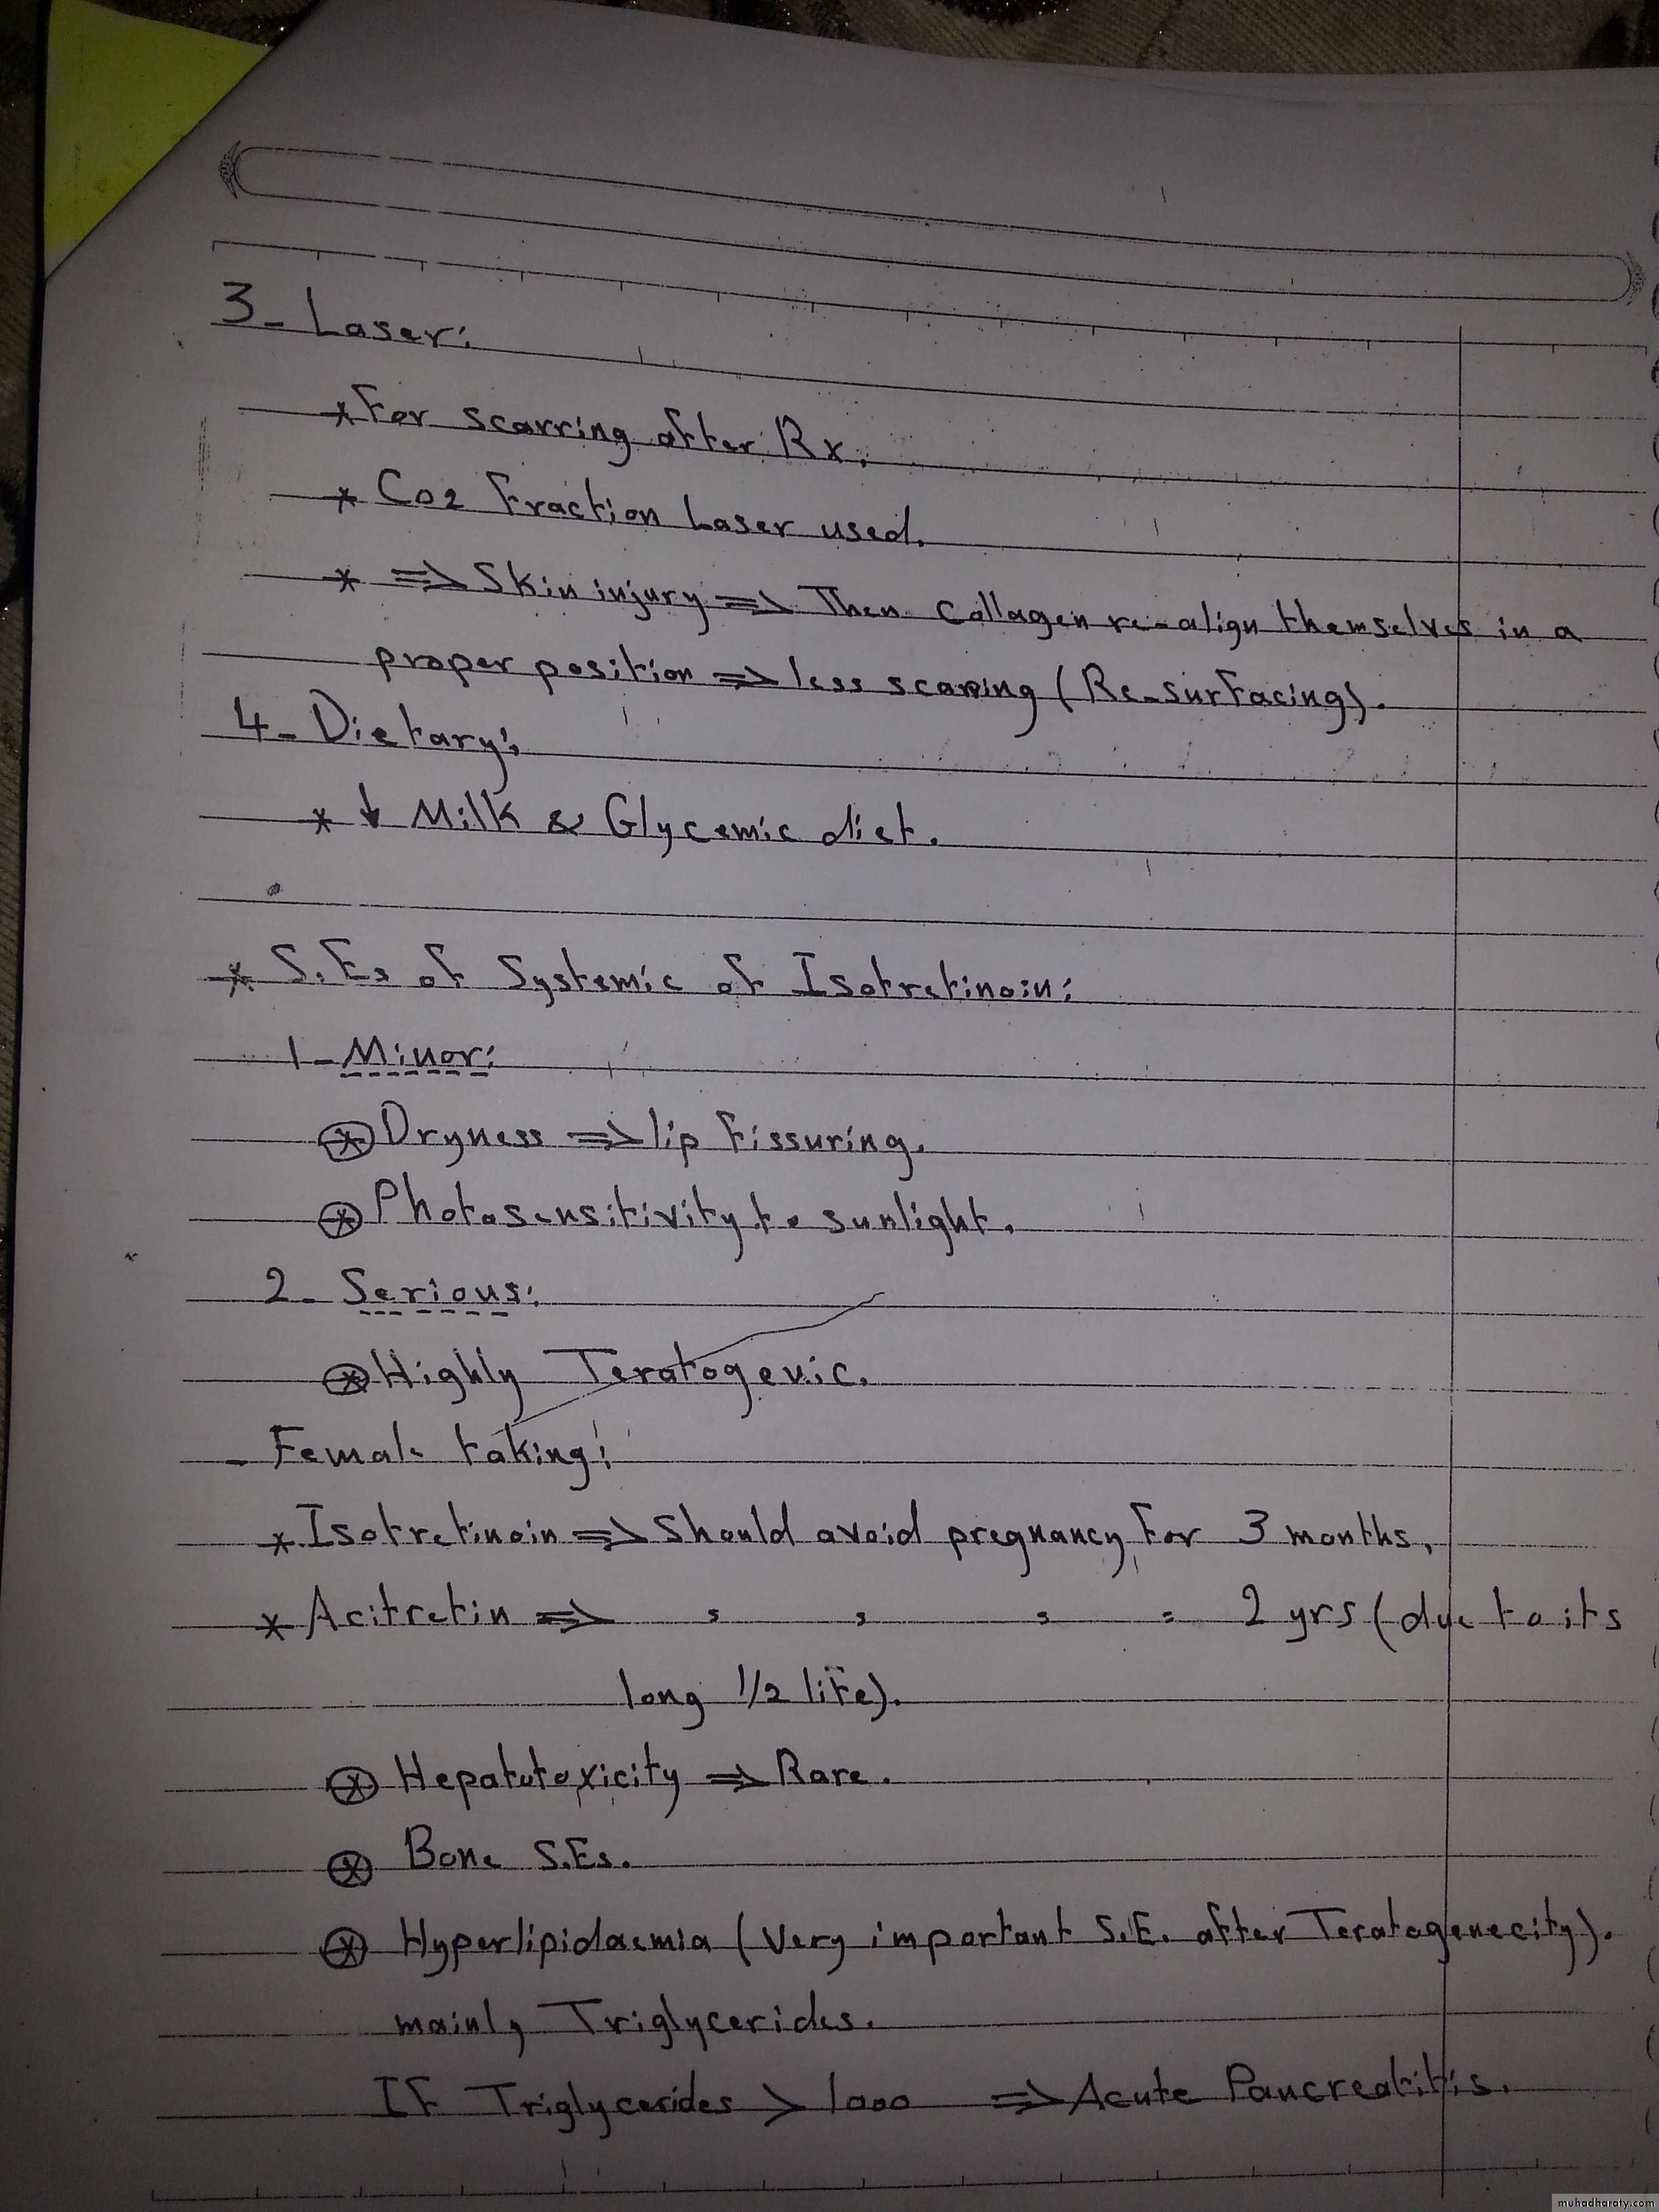 3- Laser:
* For scarring after Rx.
* Co2 Fraction Laser used.
* => Skin injury => Then collagen re-align themselves in a
proper position => less scarring (Re-surfacing).
4- Dietary:
* ↓ Milk & Glycemic diet.
* S.Es of Systemic of Isotretinoin:
1- Minor:
* Dryness => lip fissuring.
* Photosensitivity to sunlight.
2- Serious:
* Highly Teratogenic.
- Female taking:
* Isotretinoin => Should avoid pregnancy for 3 months.
* Acitretin => = = = = 2 yrs (due to its
long 1/2 life).
* Hepatotoxicity => Rare.
* Bone S.Es.
* Hyperlipidaemia (Very important S.E. after Teratogenecity).
mainly Triglycerides.
If Triglycerides > 1000 => Acute Pancreatitis.
muhadharaty.com